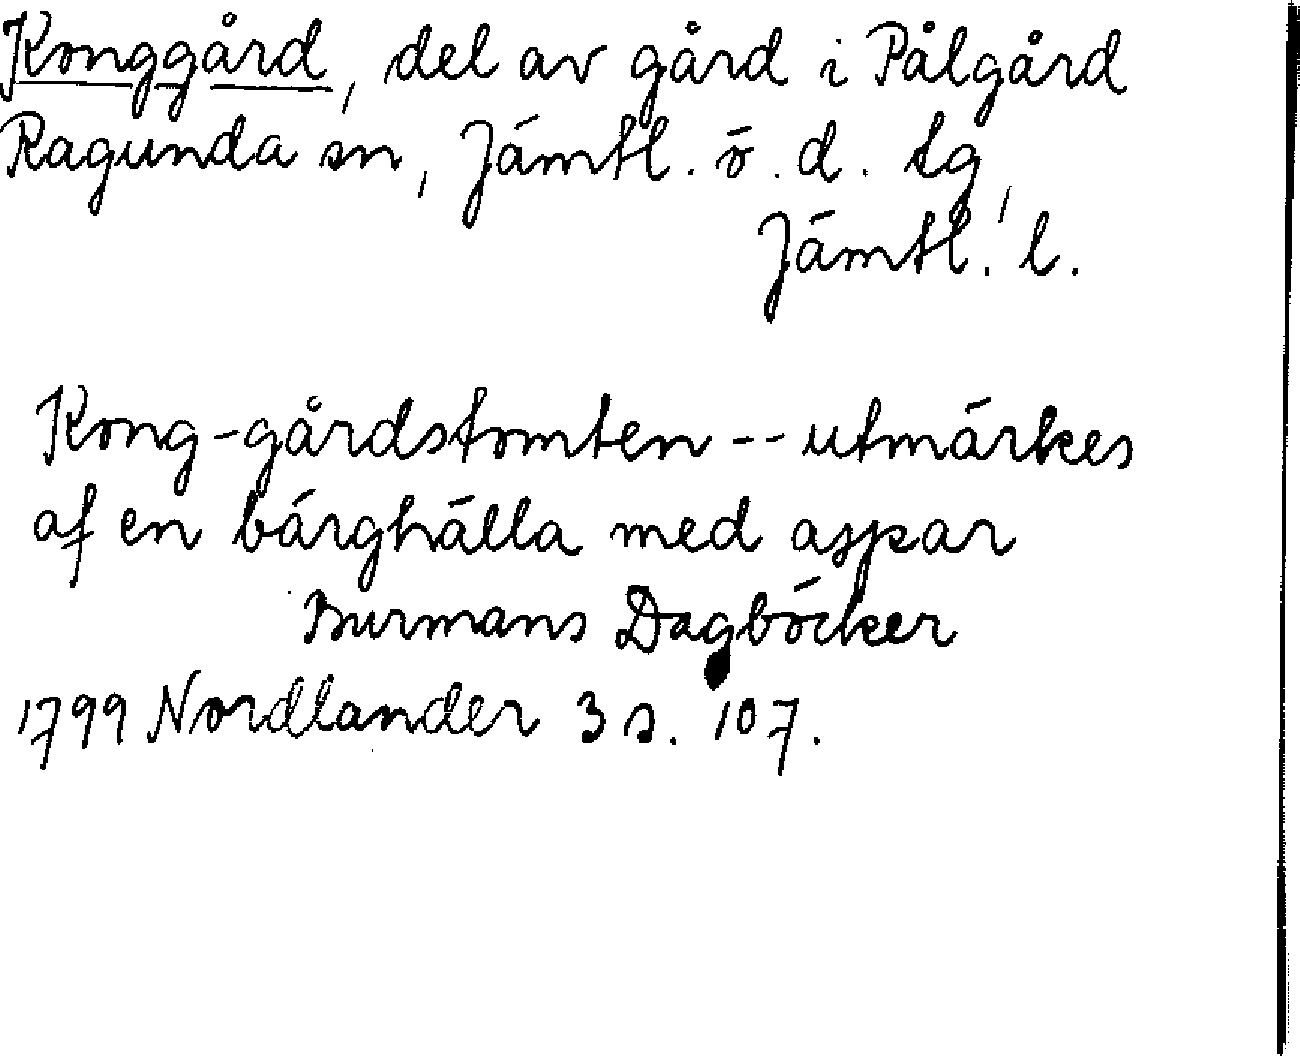 Konggård, del av gård i Pålgård
Ragunda sn, Jämtl. ö. d. tg,
Jämtl. l.
Kong-gårdstomten -- utmärkes
af en bärghälla med aspar
Burmans Dagböcker
1799 Nordlander 3 s. 107.